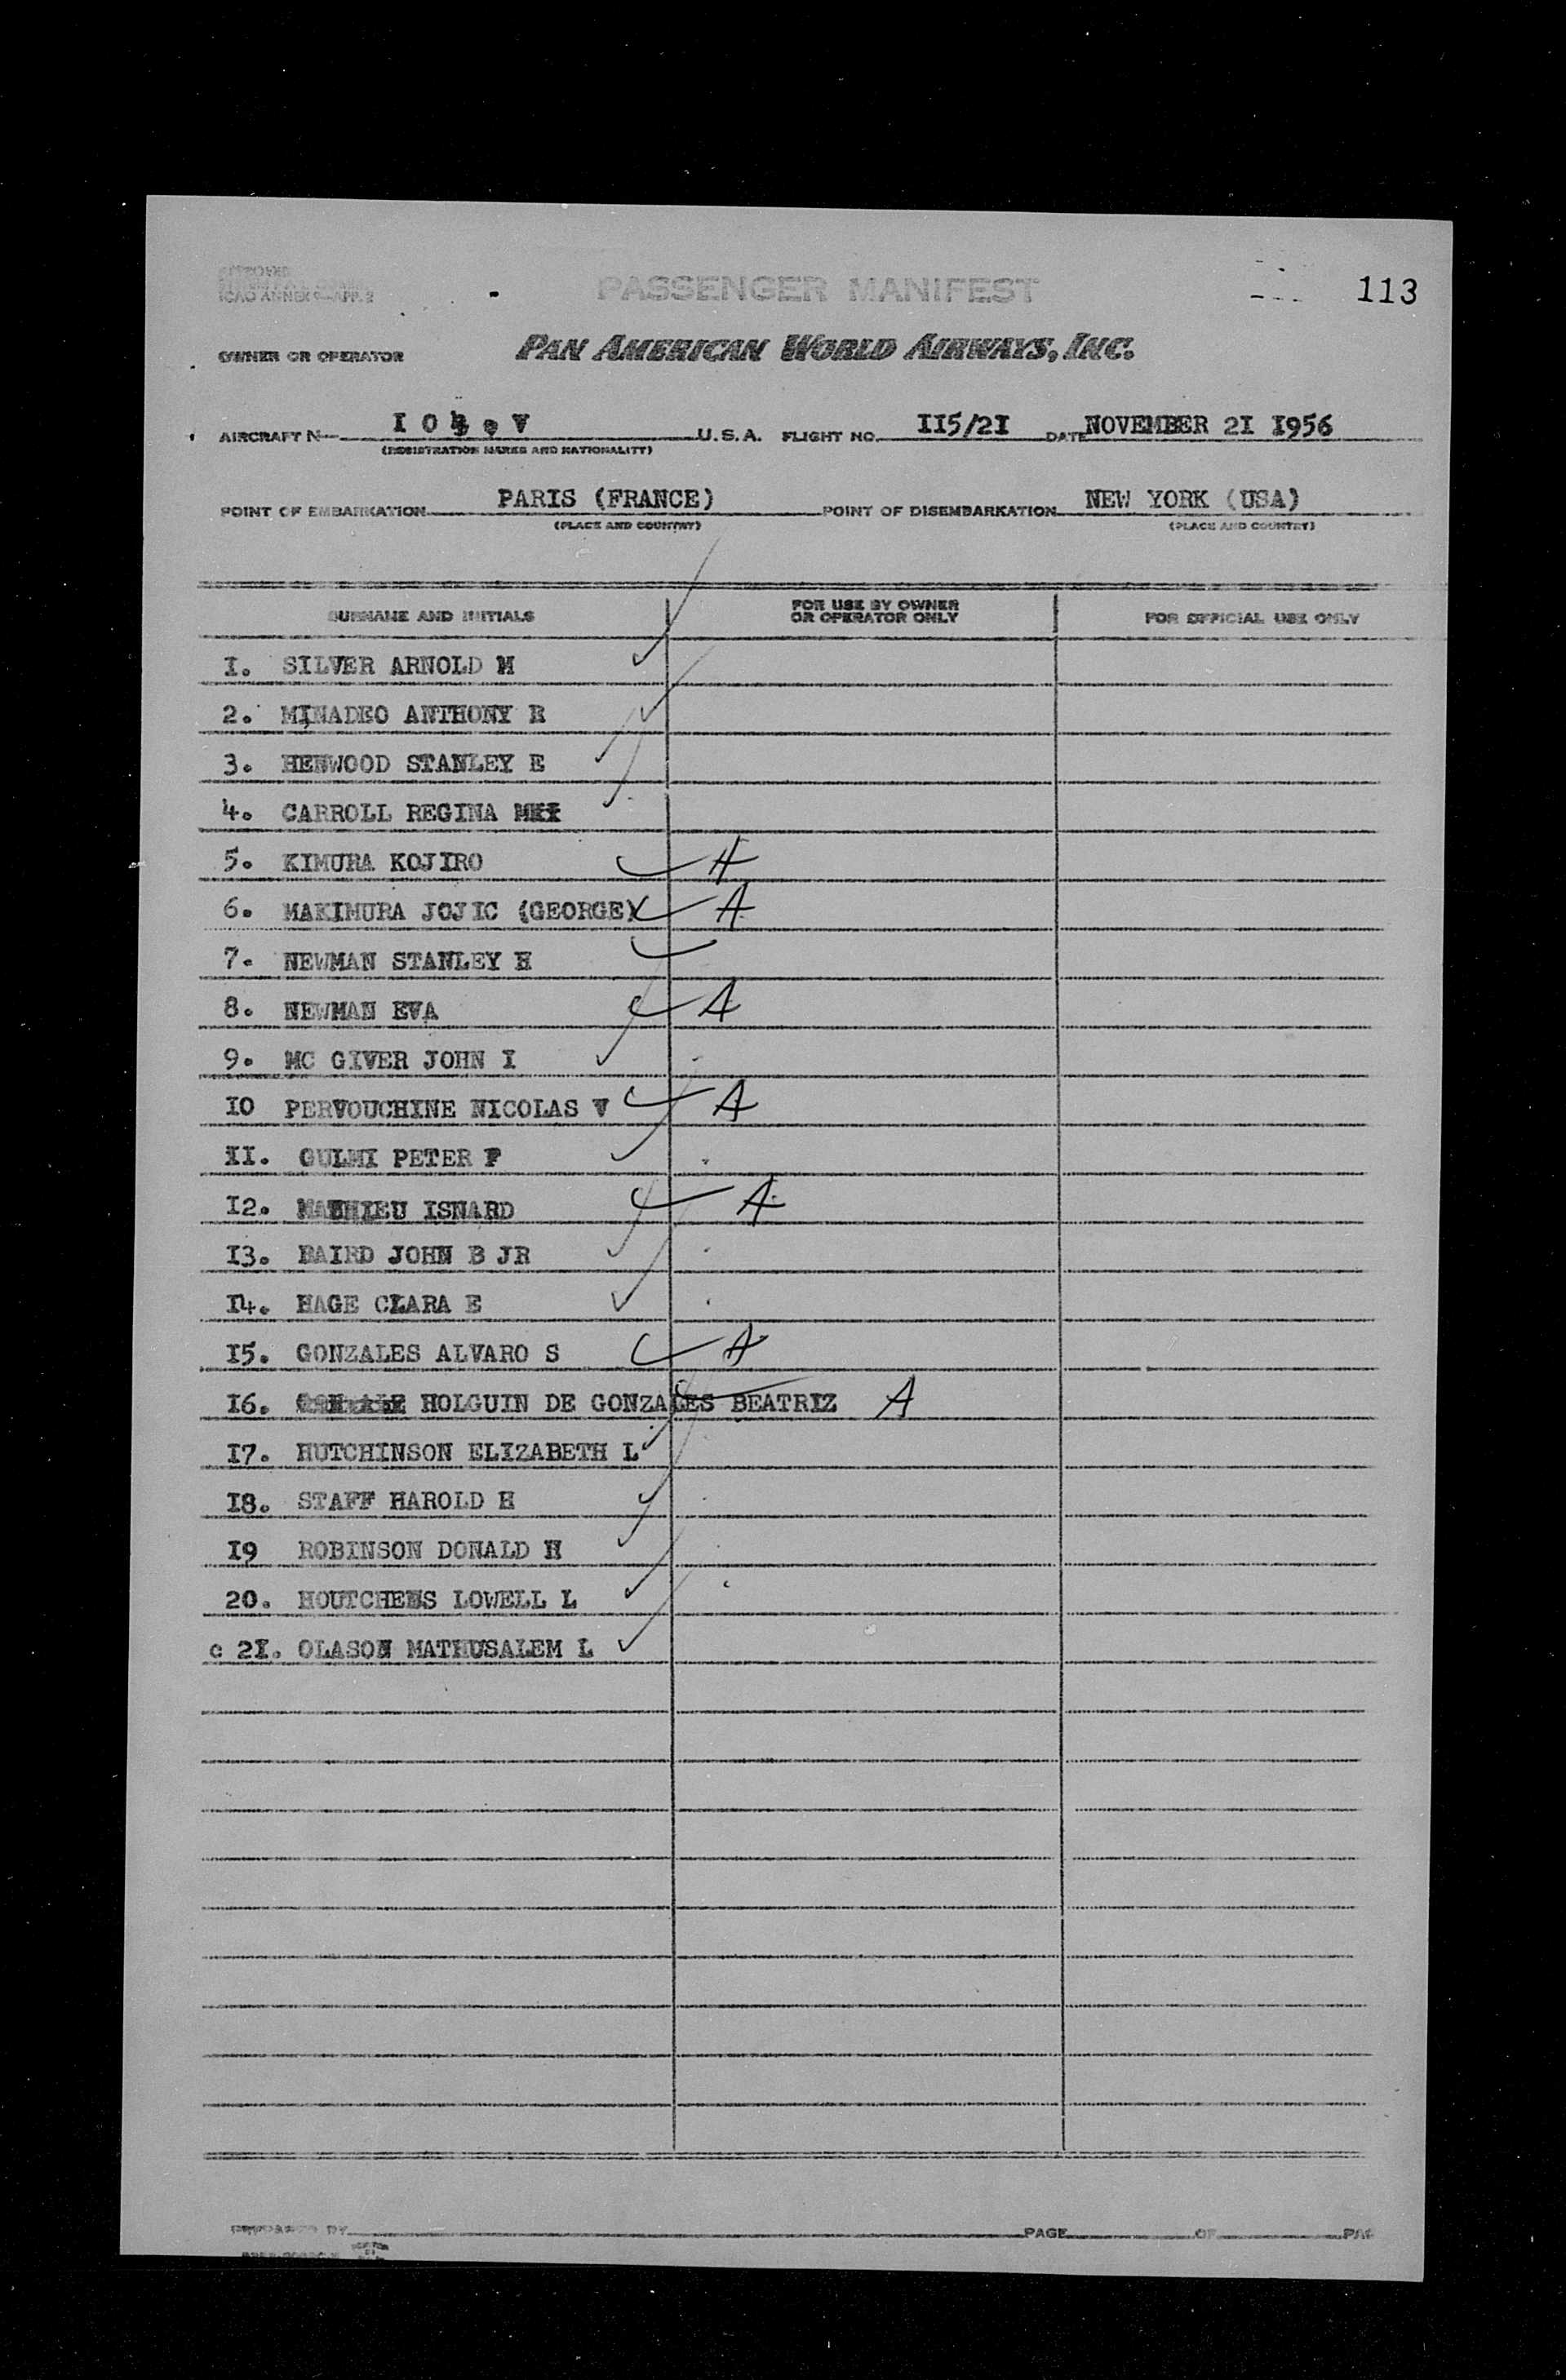 ICAO ANNEX 9—APP. 2
PASSENGER MANIFEST
113
OWNER OR OPERATOR PAN AMERICAN WORLD AIRWAYS, INC.
AIRCRAFT N— I O V U.S.A. FLIGHT NO. II5/2I DATE NOVEMBER 2I I956
(REGISTRATION MARKS AND NATIONALITY)
POINT OF EMBARKATION PARIS (FRANCE) POINT OF DISEMBARKATION NEW YORK (USA)
(PLACE AND COUNTRY) (PLACE AND COUNTRY)
SURNAME AND INITIALS FOR USE BY OWNER OR OPERATOR ONLY FOR OFFICIAL USE ONLY
I. SILVER ARNOLD M ✓
2. MINADEO ANTHONY R ✓
3. HENWOOD STANLEY E ✓
4. CARROLL REGINA ✓
5. KIMURA KOJIRO ✓ A
6. MAKIMURA JOJIC (GEORGE) ✓ A
7. NEWMAN STANLEY H ✓
8. NEWMAN EVA ✓ A
9. MC GIVER JOHN I ✓
IO PERVOUCHINE NICOLAS V ✓ A
II. GULMI PETER P ✓
I2. MATHIEU ISNARD ✓ A
I3. BAIRD JOHN B JR ✓
I4. HAGE CLARA E ✓
I5. GONZALES ALVARO S ✓ A
I6. HOLGUIN DE GONZALES BEATRIZ A
I7. HUTCHINSON ELIZABETH L ✓
I8. STAFF HAROLD H ✓
I9 ROBINSON DONALD H ✓
20. HOUTCHENS LOWELL L ✓
c 2I. OLASON MATHUSALEM L ✓
PREPARED BY PAGE OF PAG